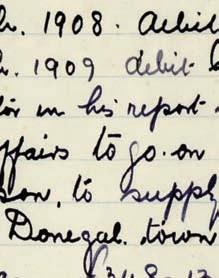 1908. debit
1909 debit
in his report
ffairs to go on
son, to supply
Donegal. town